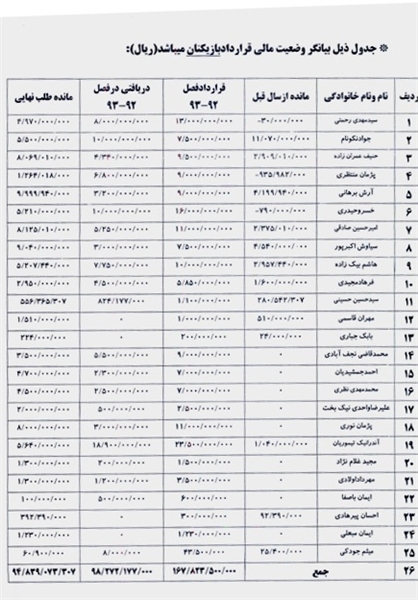 ※ جدول ذیل بیانگر وضعیت مالی قرارداد بازیکنان میباشد(ریال):
ردیف نام ونام خانوادگی مانده ازسال قبل قراردادفصل ۹۲-۹۳ دریافتی درفصل ۹۲-۹۳ مانده طلب نهایی
۱ سیدمهدی رحمتی -۳۰/۰۰۰/۰۰۰ ۱۳/۰۰۰/۰۰۰/۰۰۰ ۸/۰۰۰/۰۰۰/۰۰۰ ۴/۹۷۰/۰۰۰/۰۰۰
۲ جوادنکونام ۱۱/۰۷۰/۰۰۰/۰۰۰ ۷/۵۰۰/۰۰۰/۰۰۰ ۱۰/۰۰۰/۰۰۰/۰۰۰ ۵/۵۰۰/۰۰۰/۰۰۰
۳ حنیف عمران زاده ۲/۹۰۹/۰۱۰/۰۰۰ ۹/۵۰۰/۰۰۰/۰۰۰ ۴/۳۴۰/۰۰۰/۰۰۰ ۸/۰۶۹/۰۱۰/۰۰۰
۴ پژمان منتظری -۹۳۵/۹۸۲/۰۰۰ ۹/۰۰۰/۰۰۰/۰۰۰ ۶/۸۰۰/۰۰۰/۰۰۰ ۱/۲۶۴/۰۱۸/۰۰۰
۵ آرش برهانی ۴/۱۹۹/۹۴۰/۰۰۰ ۹/۰۰۰/۰۰۰/۰۰۰ ۳/۲۰۰/۰۰۰/۰۰۰ ۹/۹۹۹/۹۴۰/۰۰۰
۶ خسروحیدری -۷۹۰/۰۰۰/۰۰۰ ۱۶/۰۰۰/۰۰۰/۰۰۰ ۱۰/۰۰۰/۰۰۰/۰۰۰ ۵/۲۱۰/۰۰۰/۰۰۰
۷ امیرحسین صادقی ۲/۳۷۵/۰۱۰/۰۰۰ ۱۱/۰۰۰/۰۰۰/۰۰۰ ۵/۲۵۰/۰۰۰/۰۰۰ ۸/۱۲۵/۰۱۰/۰۰۰
۸ سیاوش اکبرپور ۴/۵۴۰/۰۰۰/۰۰۰ ۷/۵۰۰/۰۰۰/۰۰۰ ۳/۰۰۰/۰۰۰/۰۰۰ ۹/۰۴۰/۰۰۰/۰۰۰
۹ هاشم بیک زاده ۲/۹۵۷/۴۴۰/۰۰۰ ۱۰/۰۰۰/۰۰۰/۰۰۰ ۷/۷۵۰/۰۰۰/۰۰۰ ۵/۲۰۷/۴۴۰/۰۰۰
۱۰ فرهادمجیدی ۱/۶۰۰/۰۰۰/۰۰۰ ۵/۸۵۰/۰۰۰/۰۰۰ ۴/۵۰۰/۰۰۰/۰۰۰ ۲/۹۵۰/۰۰۰/۰۰۰
۱۱ سیدحسین حسینی ۲۸۰/۵۴۲/۳۰۷ ۱/۱۰۰/۰۰۰/۰۰۰ ۸۲۴/۱۷۷/۰۰۰ ۵۵۶/۳۶۵/۳۰۷
۱۲ مهران قاسمی ۵۱۰/۰۰۰/۰۰۰ ۱/۰۰۰/۰۰۰/۰۰۰ ۰ ۱/۵۱۰/۰۰۰/۰۰۰
۱۳ بابک جباری ۲۴/۰۰۰/۰۰۰ ۲۰۰/۰۰۰/۰۰۰ ۰ ۲۲۴/۰۰۰/۰۰۰
۱۴ محمدقاضی نجف آبادی ۰ ۹/۰۰۰/۰۰۰/۰۰۰ ۵/۵۰۰/۰۰۰/۰۰۰ ۳/۵۰۰/۰۰۰/۰۰۰
۱۵ احمدجمشیدیان ۰ ۷/۰۰۰/۰۰۰/۰۰۰ ۲/۳۰۰/۰۰۰/۰۰۰ ۴/۷۰۰/۰۰۰/۰۰۰
۱۶ محمدمهدی نظری ۰ ۷/۰۰۰/۰۰۰/۰۰۰ ۲/۵۰۰/۰۰۰/۰۰۰ ۴/۵۰۰/۰۰۰/۰۰۰
۱۷ علیرضاواحدی نیک بخت ۰ ۲/۵۰۰/۰۰۰/۰۰۰ ۵۰۰/۰۰۰/۰۰۰ ۲/۰۰۰/۰۰۰/۰۰۰
۱۸ پژمان نوری ۰ ۱۱/۰۰۰/۰۰۰/۰۰۰ ۳/۰۰۰/۰۰۰/۰۰۰ ۸/۰۰۰/۰۰۰/۰۰۰
۱۹ آندرانیک تیموریان ۱/۰۴۰/۰۰۰/۰۰۰ ۲۳/۵۰۰/۰۰۰/۰۰۰ ۱۸/۹۰۰/۰۰۰/۰۰۰ ۵/۶۴۰/۰۰۰/۰۰۰
۲۰ مجید غلام نژاد ۰ ۱/۵۰۰/۰۰۰/۰۰۰ ۲۰۰/۰۰۰/۰۰۰ ۱/۳۰۰/۰۰۰/۰۰۰
۲۱ مهرداداولادی ۰ ۳/۵۰۰/۰۰۰/۰۰۰ ۱/۲۰۰/۰۰۰/۰۰۰ ۱/۳۰۰/۰۰۰/۰۰۰
۲۲ ایمان باصفا ۰ ۶۰۰/۰۰۰/۰۰۰ ۵۰۰/۰۰۰/۰۰۰ ۱۰۰/۰۰۰/۰۰۰
۲۳ احسان پیرهادی ۹۲/۳۹۰/۰۰۰ ۳۰۰/۰۰۰/۰۰۰ ۰ ۳۹۲/۳۹۰/۰۰۰
۲۴ ایمان مبعلی ۰ ۱/۲۳۰/۰۰۰/۰۰۰ ۰ ۱/۲۳۰/۰۰۰/۰۰۰
۲۵ میثم جودکی ۲۵/۴۰۰/۰۰۰ ۴۳/۵۰۰/۰۰۰ ۸/۰۰۰/۰۰۰ ۶۰/۹۰۰/۰۰۰
۲۶ جمع ۱۶۷/۸۲۳/۵۰۰/۰۰۰ ۹۸/۲۷۲/۱۷۷/۰۰۰ ۹۴/۸۳۹/۰۷۳/۳۰۷